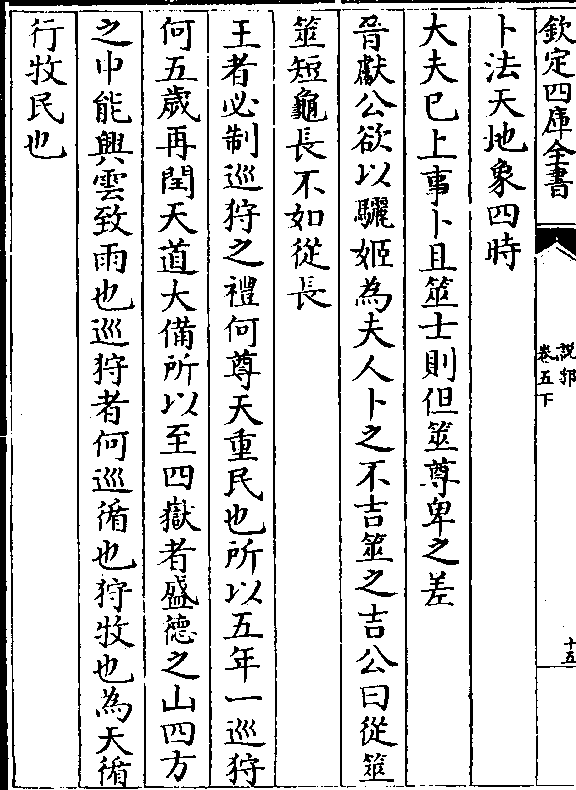 欽定四庫全書
說郛
卷五下
十五
卜法天地象四時
大夫已上事卜且筮士則但筮尊卑之差
晉獻公欲以驪姬為夫人卜之不吉筮之吉公曰從筮
筮短龜長不如從長
王者必制巡狩之禮何尊天重民也所以五年一巡狩
何五歲再閏天道大備所以至四嶽者盛德之山四方
之中能興雲致雨也巡狩者何巡循也狩牧也為天循
行牧民也